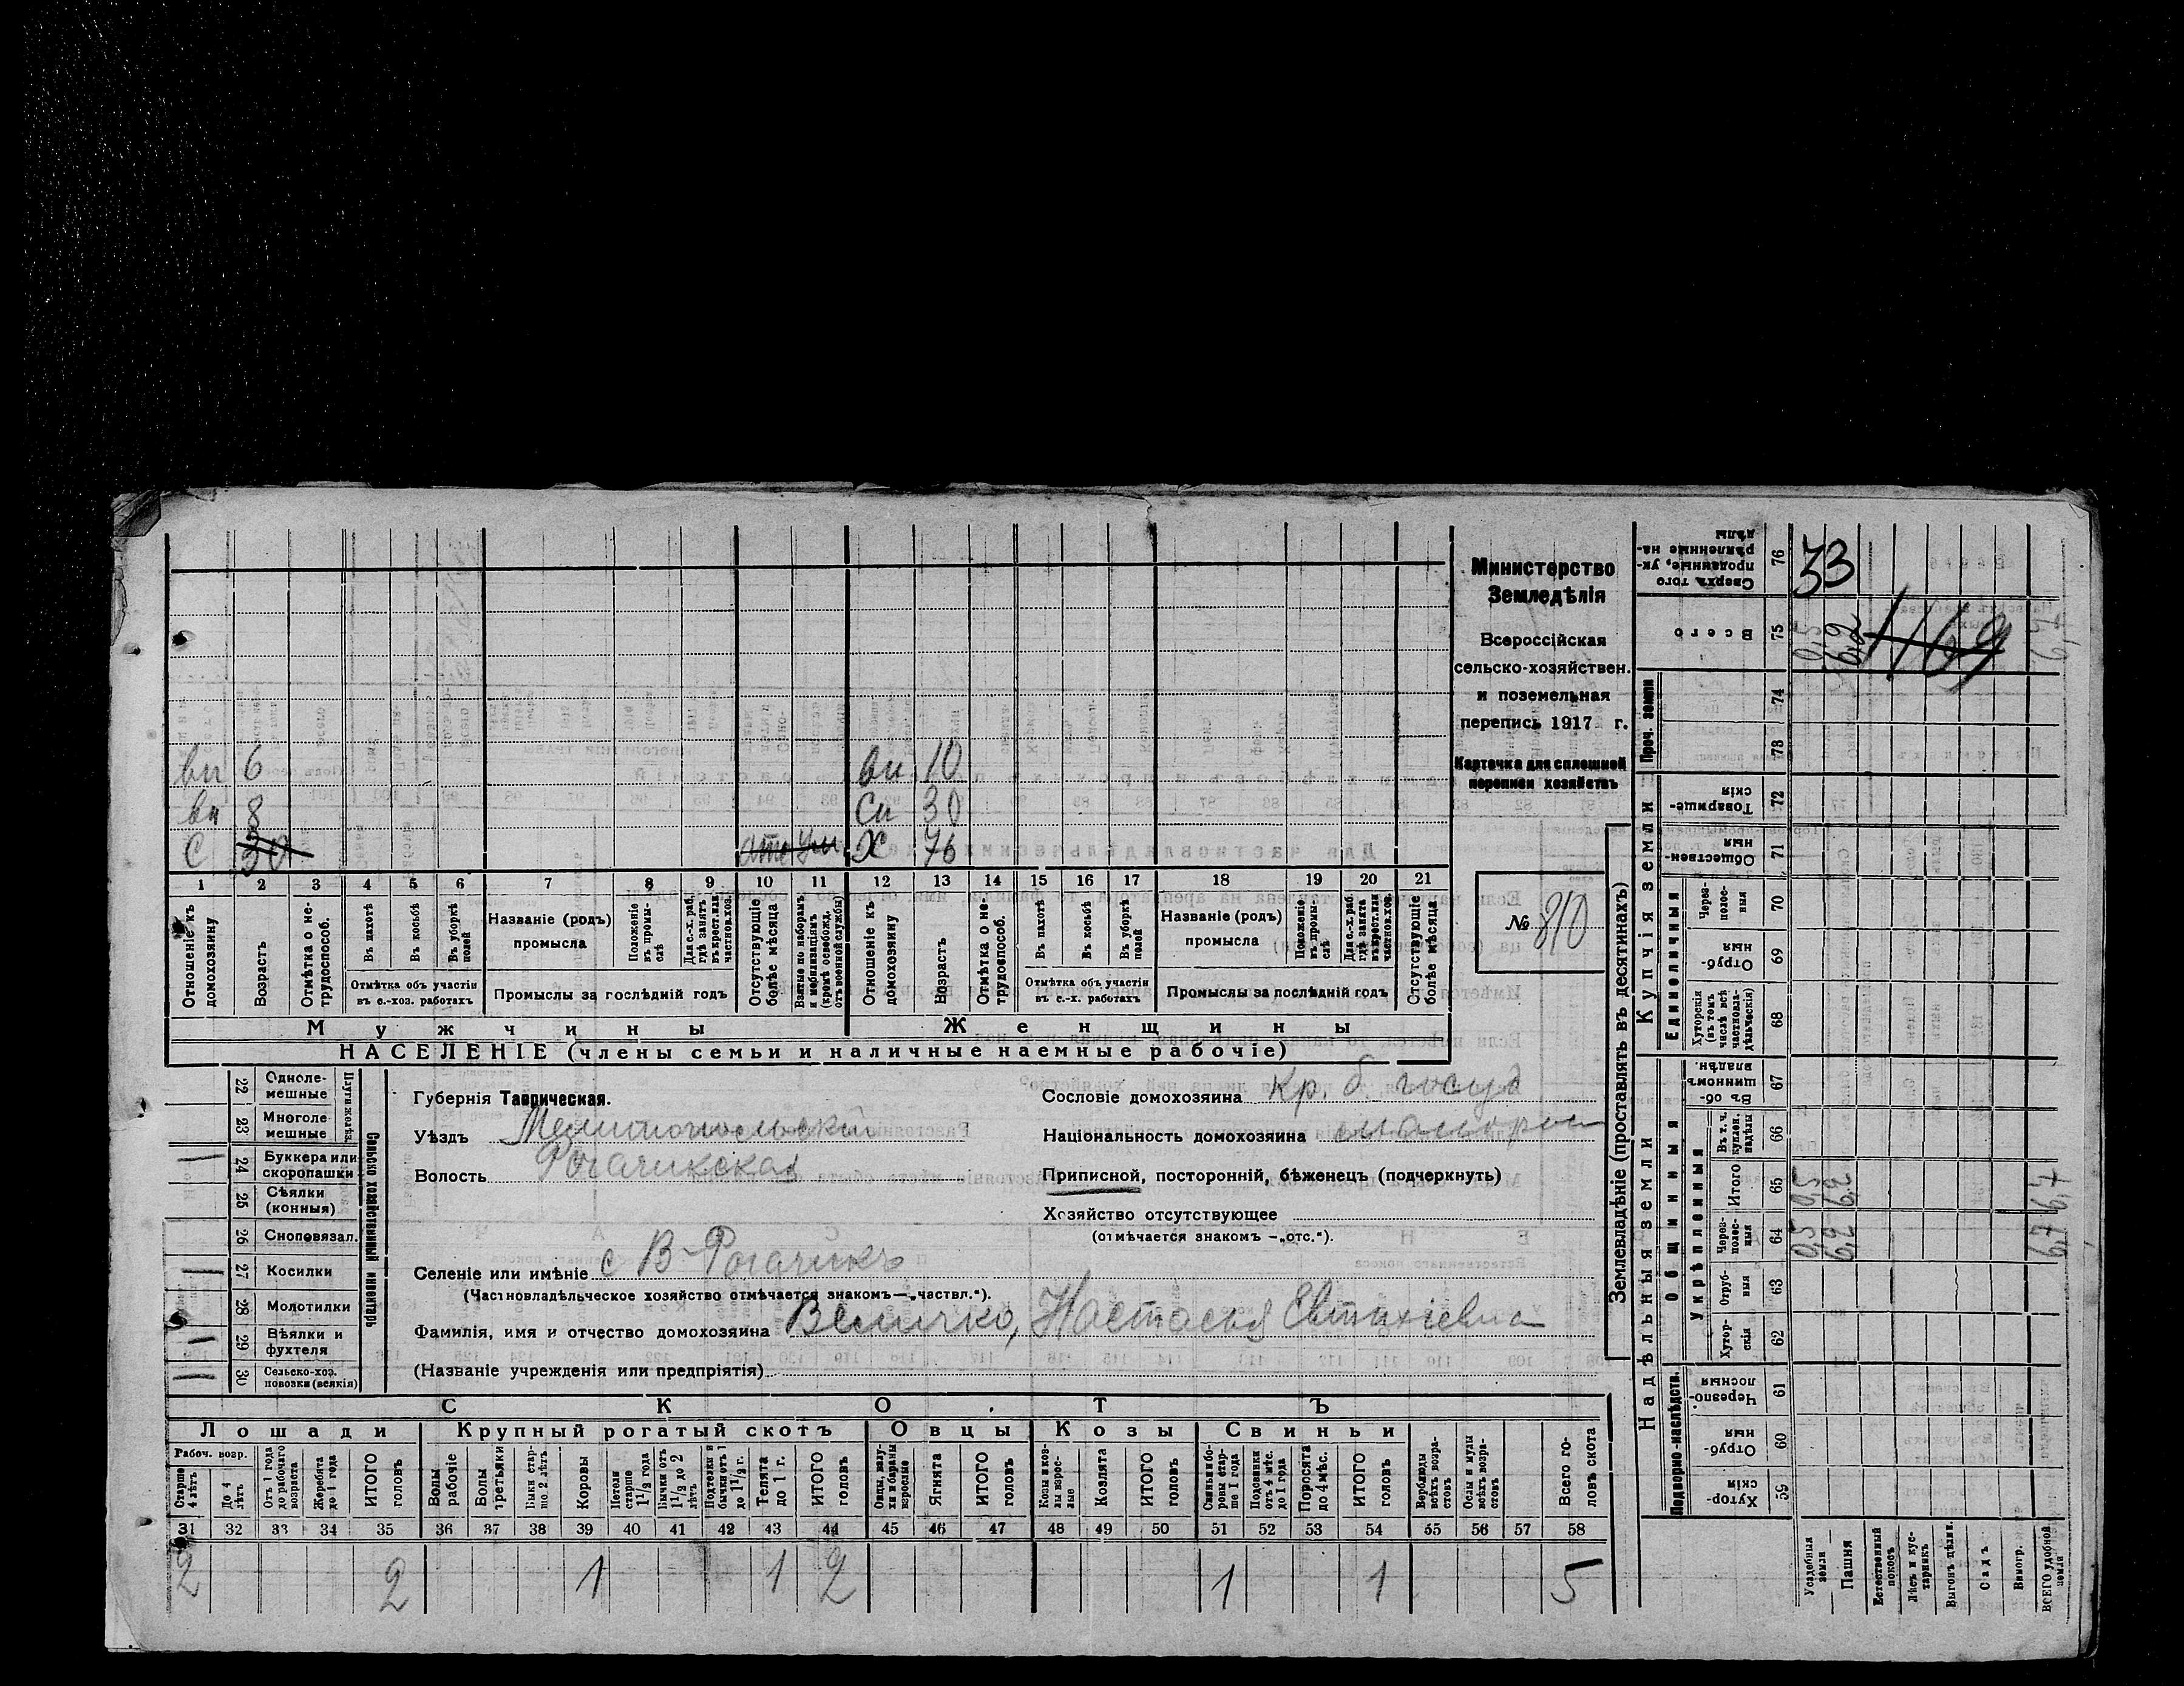 вн 6
вн 8
С 30
вн 10
Сн 30
Х 76
1 2 3 4 5 6 7 8 9 10 11 12 13 14 15 16 17 18 19 20 21
Отношеніе къ домохозяину
Возрастъ
Отмѣтка о не-трудоспособ.
Въ пахотѣ
Въ косьбѣ
Въ уборкѣ полей
Отмѣтка объ участіи въ с.-хоз. работахъ
Названіе (родъ) промысла
Положеніе въ промы-слѣ
Для с.-х. раб. гдѣ занятъ въ крест. или частнов. хоз.
Промыслы за послѣдній годъ
Отсутствующіе болѣе мѣсяца
Взятые по наборамъ и мобилизаціямъ (кромѣ освобожд. отъ военной службы)
Отношеніе къ домохозяину
Возрастъ
Отмѣтка о не-трудоспособ.
Въ пахотѣ
Въ косьбѣ
Въ уборкѣ полей
Отмѣтка объ участіи въ с.-х. работахъ
Названіе (родъ) промысла
Положеніе въ промы-слѣ
Для с.-х. раб. гдѣ занята въ крест. или частнов. хоз.
Промыслы за послѣдній годъ
Отсутствующіе болѣе мѣсяца
Мужчины
Женщины
НАСЕЛЕНІЕ (члены семьи и наличные наемные рабочіе)
Министерство
Земледѣлія
Всероссійская
сельско-хозяйствен.
и поземельная
перепись 1917 г.
Карточка для сплошной
переписи хозяйствъ
№ 810
Сельско хозяйственный инвентарь
Плуги желѣз.
22 Одноле-мешные
23 Многоле-мешные
24 Буккера или скоропашки
25 Сѣялки (конныя)
26 Сноповязал.
27 Косилки
28 Молотилки
29 Вѣялки и фухтеля
30 Сельско-хоз. повозки (всякія)
Губернія Таврическая.
Уѣздъ Мелитопольскій
Волость Рогачикская
Сословіе домохозяина Кр. б. госуд
Національность домохозяина малорос
Приписной, посторонній, бѣженецъ (подчеркнуть)
Хозяйство отсутствующее
(отмѣчается знакомъ —„отс.“).
Селеніе или имѣніе с В-Рогачикъ
(Частновладѣльческое хозяйство отмѣчается знакомъ—„частвл.“).
Фамилія, имя и отчество домохозяина Величко, Настасья Евтихіевна
(Названіе учрежденія или предпріятія)
СКОТЪ
Лошади
Крупный рогатый скотъ
Овцы
Козы
Свиньи
Рабоч. возр.
Старше 4 лѣтъ
До 4 лѣтъ
Отъ 1 года до рабочаго возраста
Жеребята до 1 года
ИТОГО головъ
Волы рабочіе
Волы третьяки
Быки стар-ше 2 лѣтъ
Коровы
Нетели старше 1 1/2 года
Бычки отъ 1 1/2 до 2 лѣтъ
Подтелки и бычки отъ 1 до 1 1/2 г.
Телята до 1 г.
ИТОГО головъ
Овцы, валу-хи и бараны взрослые
Ягнята
ИТОГО головъ
Козы и коз-лы взрос-лые
Козлята
ИТОГО головъ
Свиньи и бо-ровы стар-ше 1 года
Подсвинки отъ 4 мѣс. до 1 года
Поросята до 4 мѣс.
ИТОГО головъ
Верблюды всѣхъ возра-стовъ
Ослы и мулы всѣхъ возра-стовъ
Всего го-ловъ скота
31 32 33 34 35 36 37 38 39 40 41 42 43 44 45 46 47 48 49 50 51 52 53 54 55 56 57 58
2 2 1 1 2 1 1 5
Землевладѣніе (проставлять въ десятинахъ)
Сверхъ того проданные, ук-рѣпленные на-дѣлы 76 33
Всего 75 0,5 1169
Проч. земли 74 73
Купчія земли
Товарище-скія 72
Обществен-ныя 71
Единоличныя
Через-полос-ныя 70
Отруб-ныя 69
Хуторскія (въ томъ числѣ всѣ частновла-дѣльческія) 68
Надѣльныя земли
Общинныя
Въ об-щинномъ владѣн. 67
Укрѣпленныя
Въ т. ч. куплен. надѣлы 66
Итого 65 0,5
Через-полос-ныя 64 0,5
Отруб-ныя 63
Хутор-скія 62
Подворно-наслѣдств.
Черезпо-лосныя 61
Отруб-ныя 60
Хутор-скія 59
Усадебныя земли
Пашня
Естественный покосъ
Лѣсъ и кус-тарникъ
Выгонъ дѣлян.
Садъ
Виногр.
ВСЕГО удобной земли